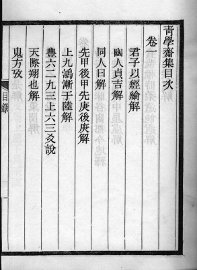 青學齋集目次
卷一
君子以經綸解
幽人貞吉解
同人曰解
先甲後甲先庚後庚解
上九鴻漸于陸解
豐六二九三上六三爻說
天際翔也解
鬼方攷
目錄